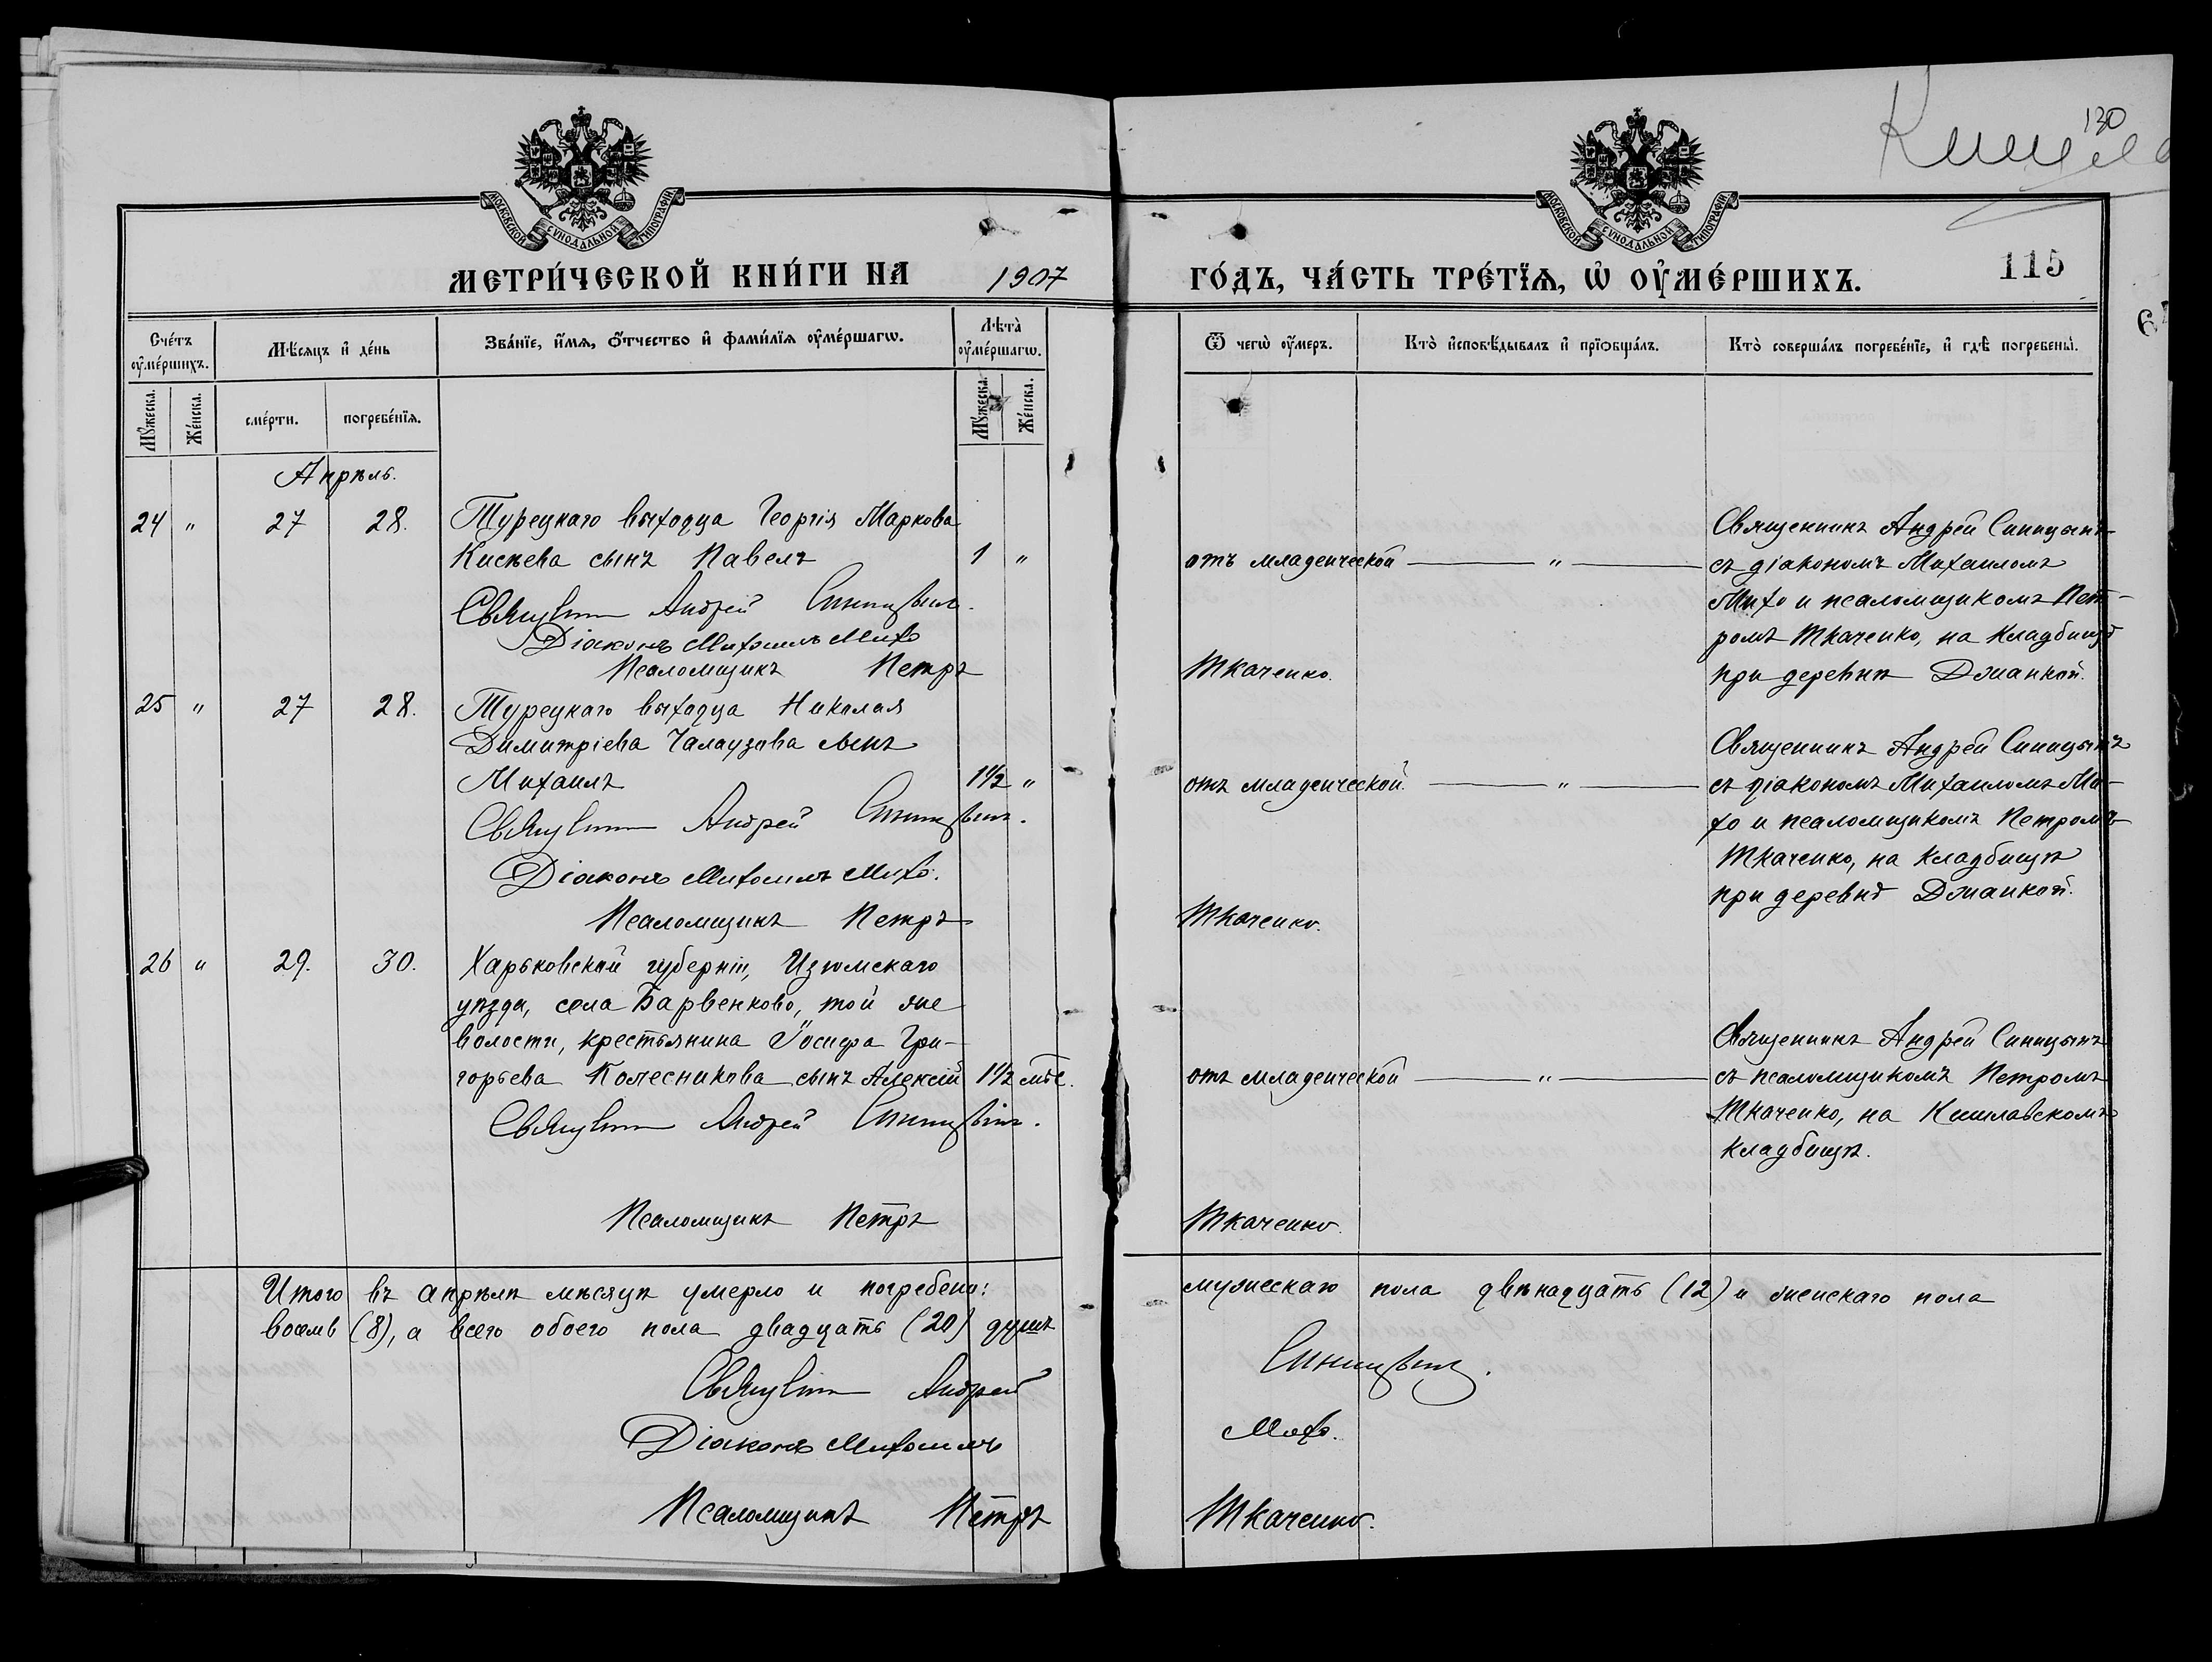 130
Кишла
МОСКОВСКОЙ СѴНОДАЛЬНОЙ ТИПОГРАФІИ
МОСКОВСКОЙ СѴНОДАЛЬНОЙ ТИПОГРАФІИ
МЕТРИ́ЧЕСКОЙ КНИ́ГИ НА 1907 ГО́ДЪ, ЧА́СТЬ ТРЕ́ТЇѦ, Ѡ҆ ОУ҆МЕ́РШИХЪ. 115
Сче́тъ оу҆ме́ршихъ.
Мѣ́сяцъ и҆ де́нь
Зва́нїе, и҆́мѧ, ѻ҆́тчество и҆ фами́лїѧ оу҆ме́ршагѡ.
Лѣта̀ оу҆ме́ршагѡ.
Ѿ чегѡ̀ оу҆́меръ.
Кто̀ и҆сповѣ́дывалъ и҆ прїѡбща́лъ.
Кто̀ соверша́лъ погребе́нїе, и҆ гдѣ̀ погребены̀.
Мꙋ́жеска.
Же́нска.
сме́рти.
погребе́нїѧ.
Мꙋ́жеска.
Же́нска.
Апрѣль.
24 " 27 28. Турецкаго выходца Георгія Маркова
Кисѣева сынъ Павелъ 1 "
Андрей Синицынъ.
Діаконъ Михаилъ Михо
Псаломщикъ Петръ Ткаченко.
отъ младенческой "
Священникъ Андрей Синицынъ
съ діакономъ Михаиломъ
Михо и псаломщикомъ Пет-
ромъ Ткаченко, на кладбищѣ
при деревнѣ Джанкой.
25 " 27 28. Турецкаго выходца Николая
Димитріева Чалаузова сынъ
Михаилъ 1½ "
Андрей Синицынъ.
Діаконъ Михаилъ Михо.
Псаломщикъ Петръ Ткаченко.
отъ младенческой. "
Священникъ Андрей Синицынъ
съ діакономъ Михаиломъ Ми-
хо и псаломщикомъ Петромъ
Ткаченко, на кладбищѣ
при деревнѣ Джанкой.
26 " 29. 30. Харьковской губерніи, Изюмскаго
уѣзда, села Барвенково, той же
волости, крестьянина Іосифа Гри-
горьева Колесникова сынъ Алексій 1½ мѣс.
Андрей Синицынъ.
Псаломщикъ Петръ Ткаченко.
отъ младенческой "
Священникъ Андрей Синицынъ
съ псаломщикомъ Петромъ
Ткаченко, на Кишлавскомъ
кладбищѣ.
Итого въ апрѣлѣ мѣсяцѣ умерло и погребено: мужескаго пола двѣнадцать (12) и женскаго пола
восемь (8), а всего обоего пола двадцать (20) душъ
Андрей Синицынъ.
Діаконъ Михаилъ Михо.
Псаломщикъ Петръ Ткаченко.